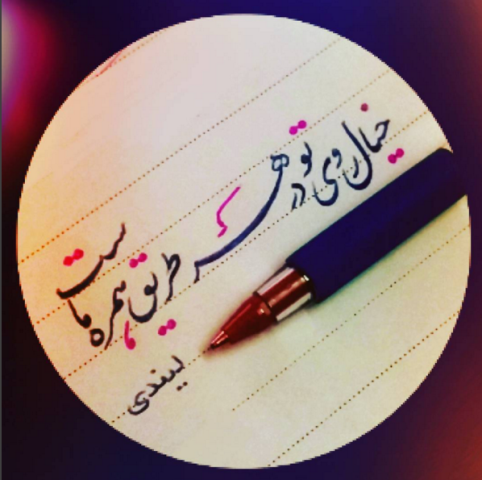 خیال روی تو در هر طریق همره ماست